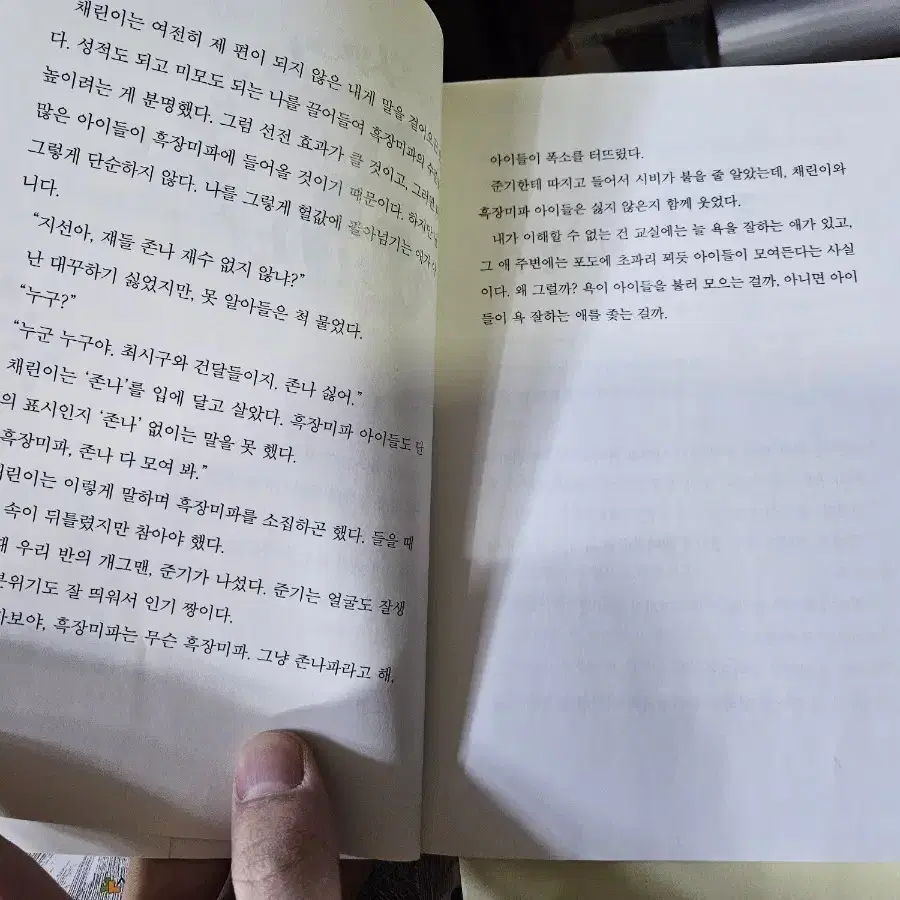 채린이는 여전히 제 편이 되지 않은 내게 말을 걸어오곤
다. 성적도 되고 미모도 되는 나를 끌어들여 흑장미파의 수준을
높이려는 게 분명했다. 그럼 선전 효과가 클 것이고, 그러면
많은 아이들이 흑장미파에 들어올 것이기 때문이다. 하지만
그렇게 단순하지 않다. 나를 그렇게 헐값에 팔아넘기는 애가
니다.
“지선아, 쟤들 존나 재수 없지 않냐?”
난 대꾸하기 싫었지만, 못 알아들은 척 물었다.
“누구?”
“누군 누구야. 최시구와 건달들이지. 존나 싫어.”
채린이는 ‘존나’를 입에 달고 살았다. 흑장미파 아이들도 단
의 표시인지 ‘존나’ 없이는 말을 못 했다.
흑장미파, 존나 다 모여 봐.”
채린이는 이렇게 말하며 흑장미파를 소집하곤 했다. 들을 때
속이 뒤틀렸지만 참아야 했다.
때 우리 반의 개그맨, 준기가 나섰다. 준기는 얼굴도 잘생
분위기도 잘 띄워서 인기 짱이다.
흑장미파는 무슨 흑장미파. 그냥 존나파라고 해,
아이들이 폭소를 터뜨렸다.
준기한테 따지고 들어서 시비가 붙을 줄 알았는데, 채린이와
흑장미파 아이들은 싫지 않은지 함께 웃었다.
내가 이해할 수 없는 건 교실에는 늘 욕을 잘하는 애가 있고,
그 애 주변에는 포도에 초파리 꾀듯 아이들이 모여든다는 사실
이다. 왜 그럴까? 욕이 아이들을 불러 모으는 걸까, 아니면 아이
들이 욕 잘하는 애를 좇는 걸까.